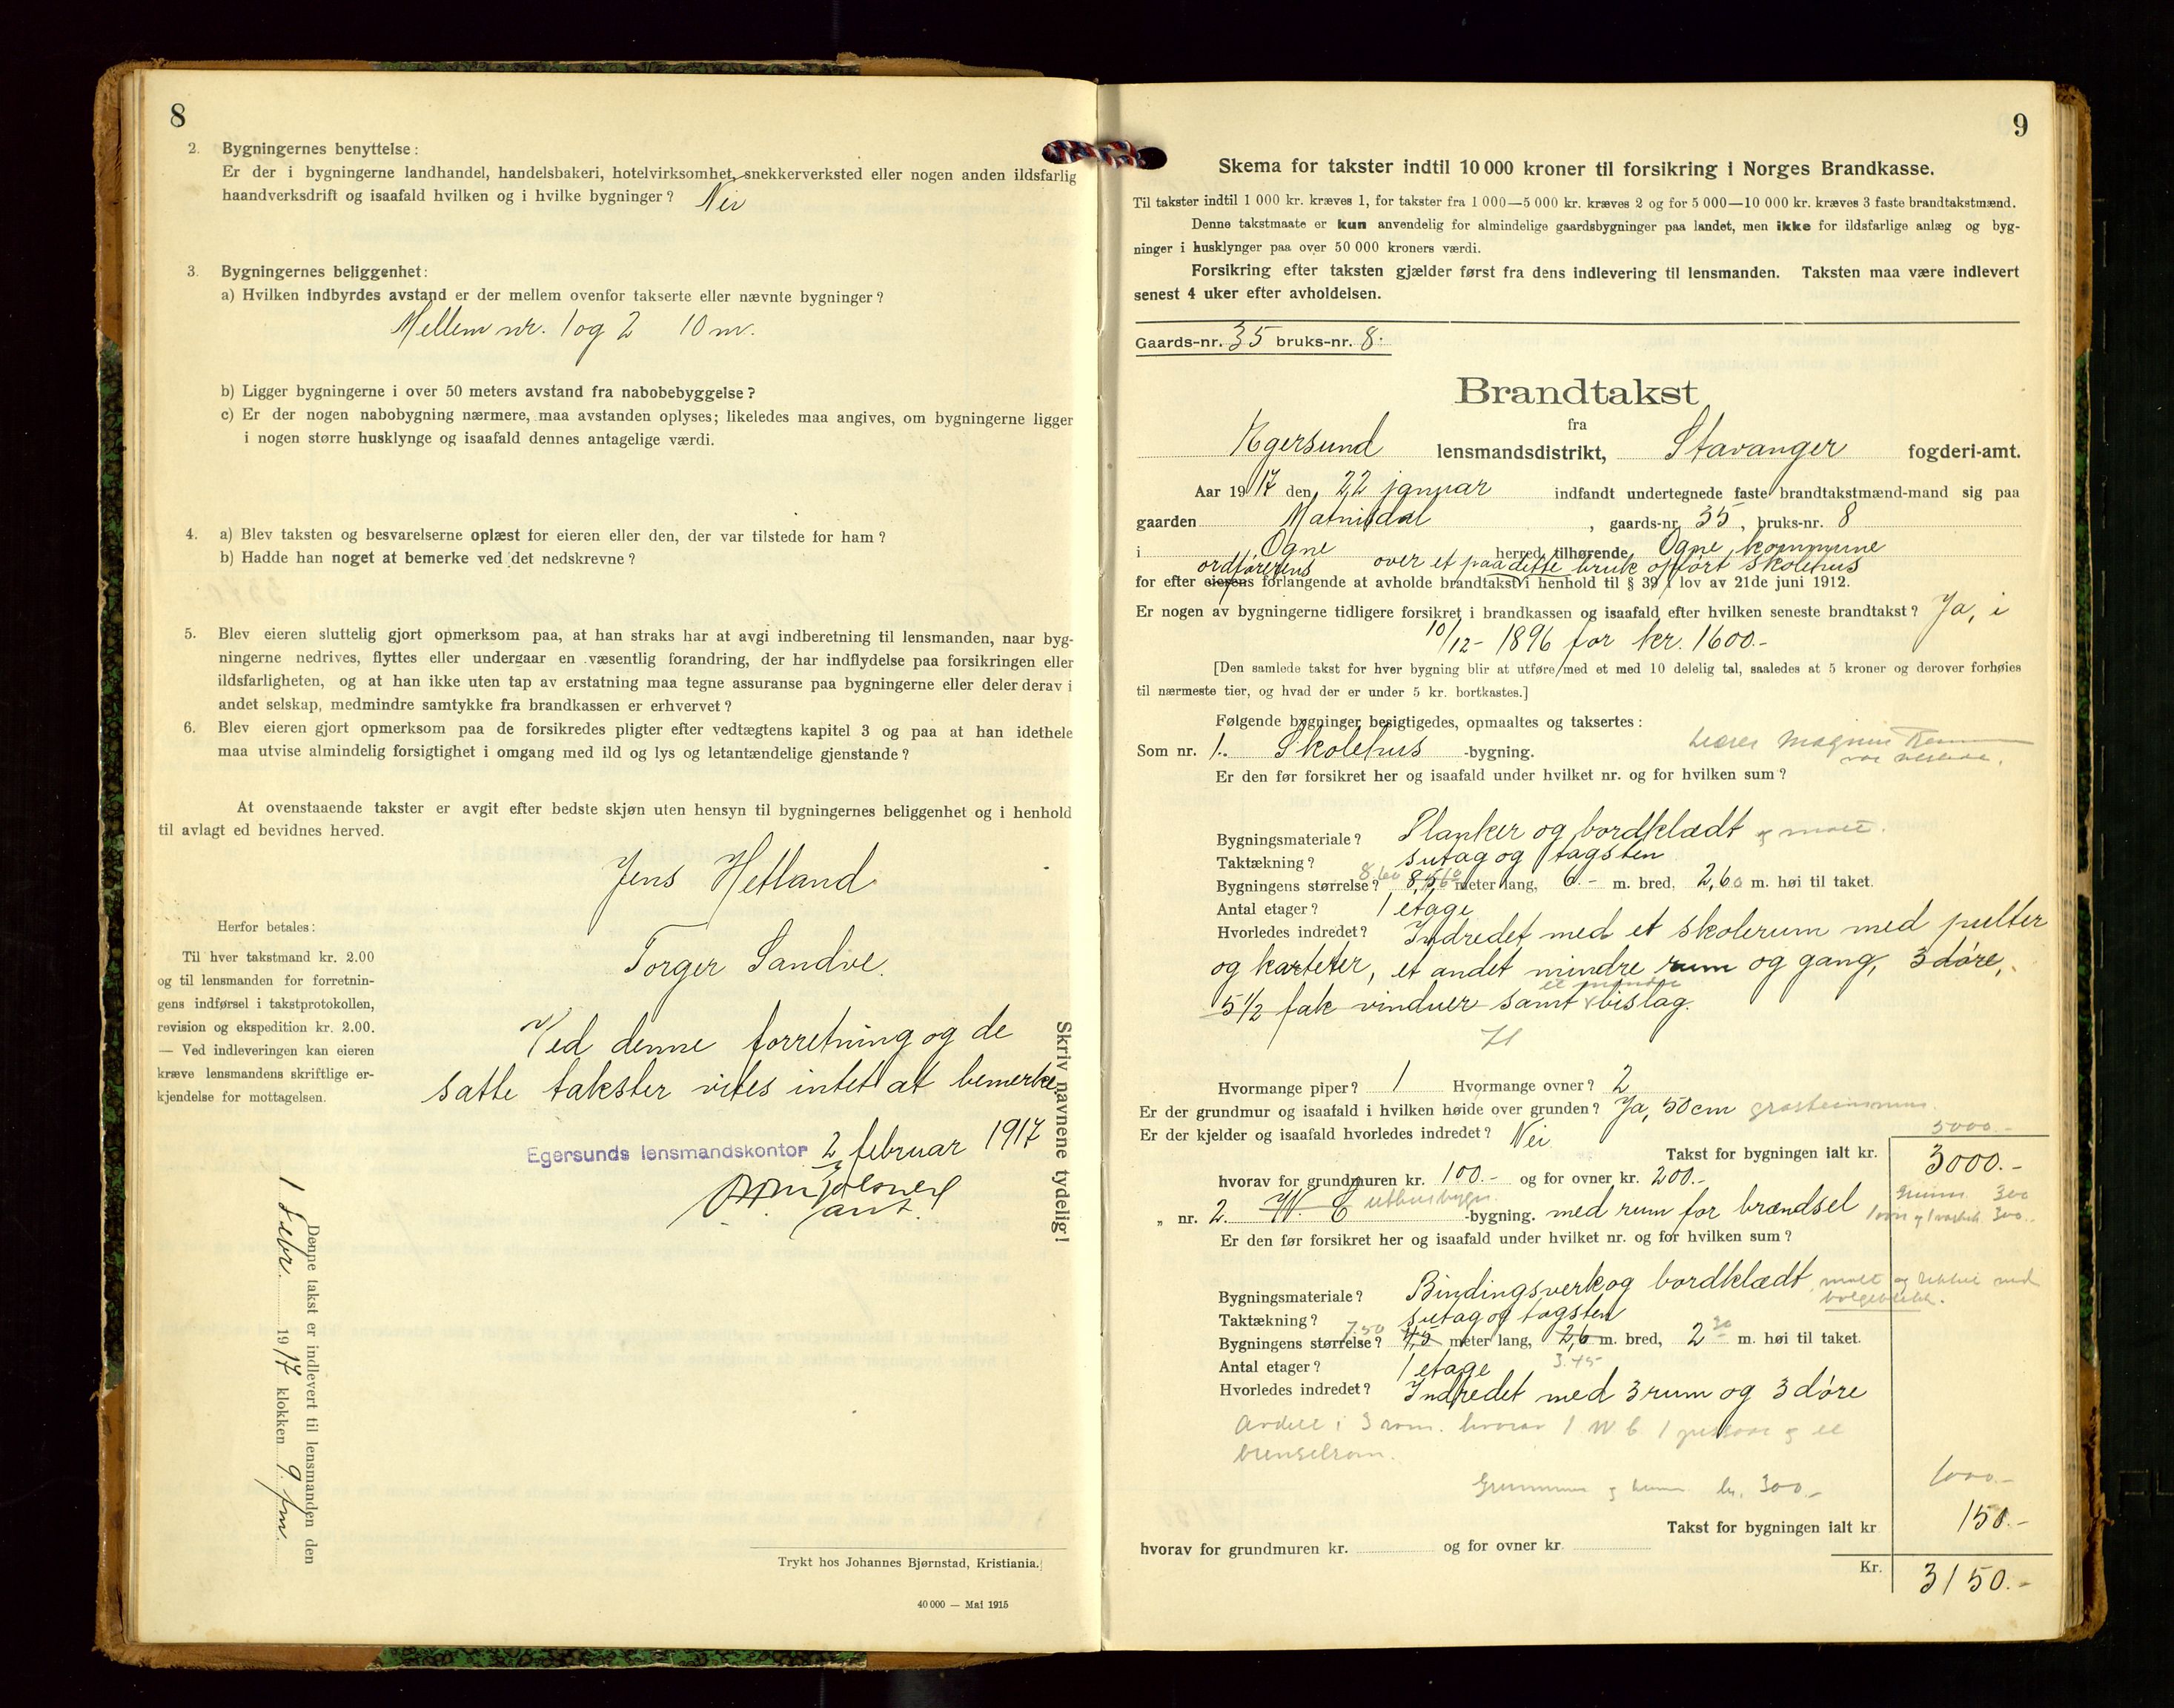 8
2. Bygningernes benyttelse:
Er der i bygningerne landhandel, handelsbakeri, hotelvirksomhet, snekkerverksted eller nogen anden ildsfarlig
haandverksdrift og isaafald hvilken og i hvilke bygninger? Nei
3. Bygningernes beliggenhet:
a) Hvilken indbyrdes avstand er der mellem ovenfor takserte eller nævnte bygninger?
Mellem nr. 1 og 2 10 m.
b) Ligger bygningerne i over 50 meters avstand fra nabobebyggelse?
c) Er der nogen nabobygning nærmere, maa avstanden oplyses; likeledes maa angives, om bygningerne ligger
i nogen større husklynge og isaafald dennes antagelige værdi.
4. a) Blev taksten og besvarelserne oplæst for eieren eller den, der var tilstede for ham?
b) Hadde han noget at bemerke ved det nedskrevne?
5. Blev eieren sluttelig gjort opmerksom paa, at han straks har at avgi indberetning til lensmanden, naar byg-
ningerne nedrives, flyttes eller undergaar en væsentlig forandring, der har indflydelse paa forsikringen eller
ildsfarligheten, og at han ikke uten tap av erstatning maa tegne assuranse paa bygningerne eller deler derav i
andet selskap, medmindre samtykke fra brandkassen er erhvervet?
6. Blev eieren gjort opmerksom paa de forsikredes pligter efter vedtægtens kapitel 3 og paa at han idethele
maa utvise almindelig forsigtighet i omgang med ild og lys og letantændelige gjenstande?
At ovenstaaende takster er avgit efter bedste skjøn uten hensyn til bygningernes beliggenhet og i henhold
til avlagt ed bevidnes herved.
Jens Hetland
Torger Sandve.
Herfor betales:
Til hver takstmand kr. 2.00
og til lensmanden for forretnin-
gens indførsel i takstprotokollen,
revision og ekspedition kr. 2.00.
— Ved indleveringen kan eieren
kræve lensmandens skriftlige er-
kjendelse for mottagelsen.
Ved denne forretning og de
satte takster vites intet at bemerke
Egersunds lensmandskontor 2 februar 1917
Skriv navnene tydelig!
Denne takst er indlevert til lensmanden den
1 Febr. 1917 klokken 9 fm.
Trykt hos Johannes Bjørnstad, Kristiania.
40 000 — Mai 1915
9
Skema for takster indtil 10 000 kroner til forsikring i Norges Brandkasse.
Til takster indtil 1 000 kr. kræves 1, for takster fra 1 000—5 000 kr. kræves 2 og for 5 000—10 000 kr. kræves 3 faste brandtakstmænd.
Denne takstmaate er kun anvendelig for almindelige gaardsbygninger paa landet, men ikke for ildsfarlige anlæg og byg-
ninger i husklynger paa over 50 000 kroners værdi.
Forsikring efter taksten gjælder først fra dens indlevering til lensmanden. Taksten maa være indlevert
senest 4 uker efter avholdelsen.
Gaards-nr. 35 bruks-nr. 8.
Brandtakst
fra
Egersund lensmandsdistrikt, Stavanger fogderi-amt.
Aar 1917 den 22 januar indfandt undertegnede faste brandtakstmænd-mand sig paa
gaarden Matnisdal, gaards-nr. 35, bruks-nr. 8
i Ogne herred, tilhørende Ogne kommune
ordførerens over et paa dette bruk opført skolehus
for efter eierens forlangende at avholde brandtakst i henhold til § 39 i lov av 21de juni 1912.
Er nogen av bygningerne tidligere forsikret i brandkassen og isaafald efter hvilken seneste brandtakst? Ja, i
10/12 - 1896 for kr. 1600.-
[Den samlede takst for hver bygning blir at utføre med et med 10 delelig tal, saaledes at 5 kroner og derover forhøies
til nærmeste tier, og hvad der er under 5 kr. bortkastes.]
Følgende bygninger besigtigedes, opmaaltes og taksertes:
Som nr. 1. Skolehus -bygning.
Er den før forsikret her og isaafald under hvilket nr. og for hvilken sum?
Bygningsmateriale? Planker og bordklædt og malt.
Taktækning? sutag og tagsten
Bygningens størrelse? 8.60 meter lang, 6.- m. bred, 2,60 m. høi til taket.
Antal etager? 1 etage
Hvorledes indredet? Indredet med et skolerum med pulter
og karteter, et andet mindre rum og gang, 3 døre,
et mindre
5 1/2 fak vinduer samt bislag.
Hvormange piper? 1 Hvormange ovner? 2
Er der grundmur og isaafald i hvilken høide over grunden? Ja, 50 cm
Er der kjelder og isaafald hvorledes indredet? Nei
5000.-
Takst for bygningen ialt kr. 3000.-
hvorav for grundmuren kr. 100.- og for ovner kr. 200.-
„ nr. 2. W. C uthusbygn. -bygning. med rum for brændsel
300
300
Er den før forsikret her og isaafald under hvilket nr. og for hvilken sum?
Bygningsmateriale? Bindingsverk og bordklædt malt og
Taktækning? sutag og tagsten
Bygningens størrelse? 7.50 4,5 meter lang, 2,6 m. bred, 2 30 m. høi til taket.
3.45
Antal etager? 1 etage
Hvorledes indredet? Indredet med 3 rum og 3 døre
Avdelt i 3 rom. hvorav 1 W C 1 og et
brenselrom.
kr. 300.-
1000.-
Takst for bygningen ialt kr 150.-
hvorav for grundmuren kr. og for ovner kr
Kr. 3150.-